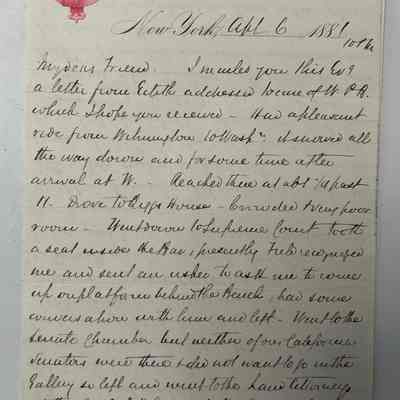 New York, Apl 6 1881
10 P.M.
My dear Friend. I mailed you this Eve
a letter from Edith addressed to care of W P B.
which I hope you received - Had a pleasant
ride from Wilmington to Washn. it snowed all
the way down and for some time after
arrival at W. - Reached there at abt 1/4 past
11. Drove to Riggs House - Crowded & very poor
room - Went down to Supreme Court took
a seat inside the Bar, presently Field recognized
me and sent an usher to ask me to come
up on platform behind the Bench, had some
conversation with him and left - Went to the
Senate Chamber but neither of our California
Senators were there & did not want to go in the
Gallery so left and went to the Land Attorneys